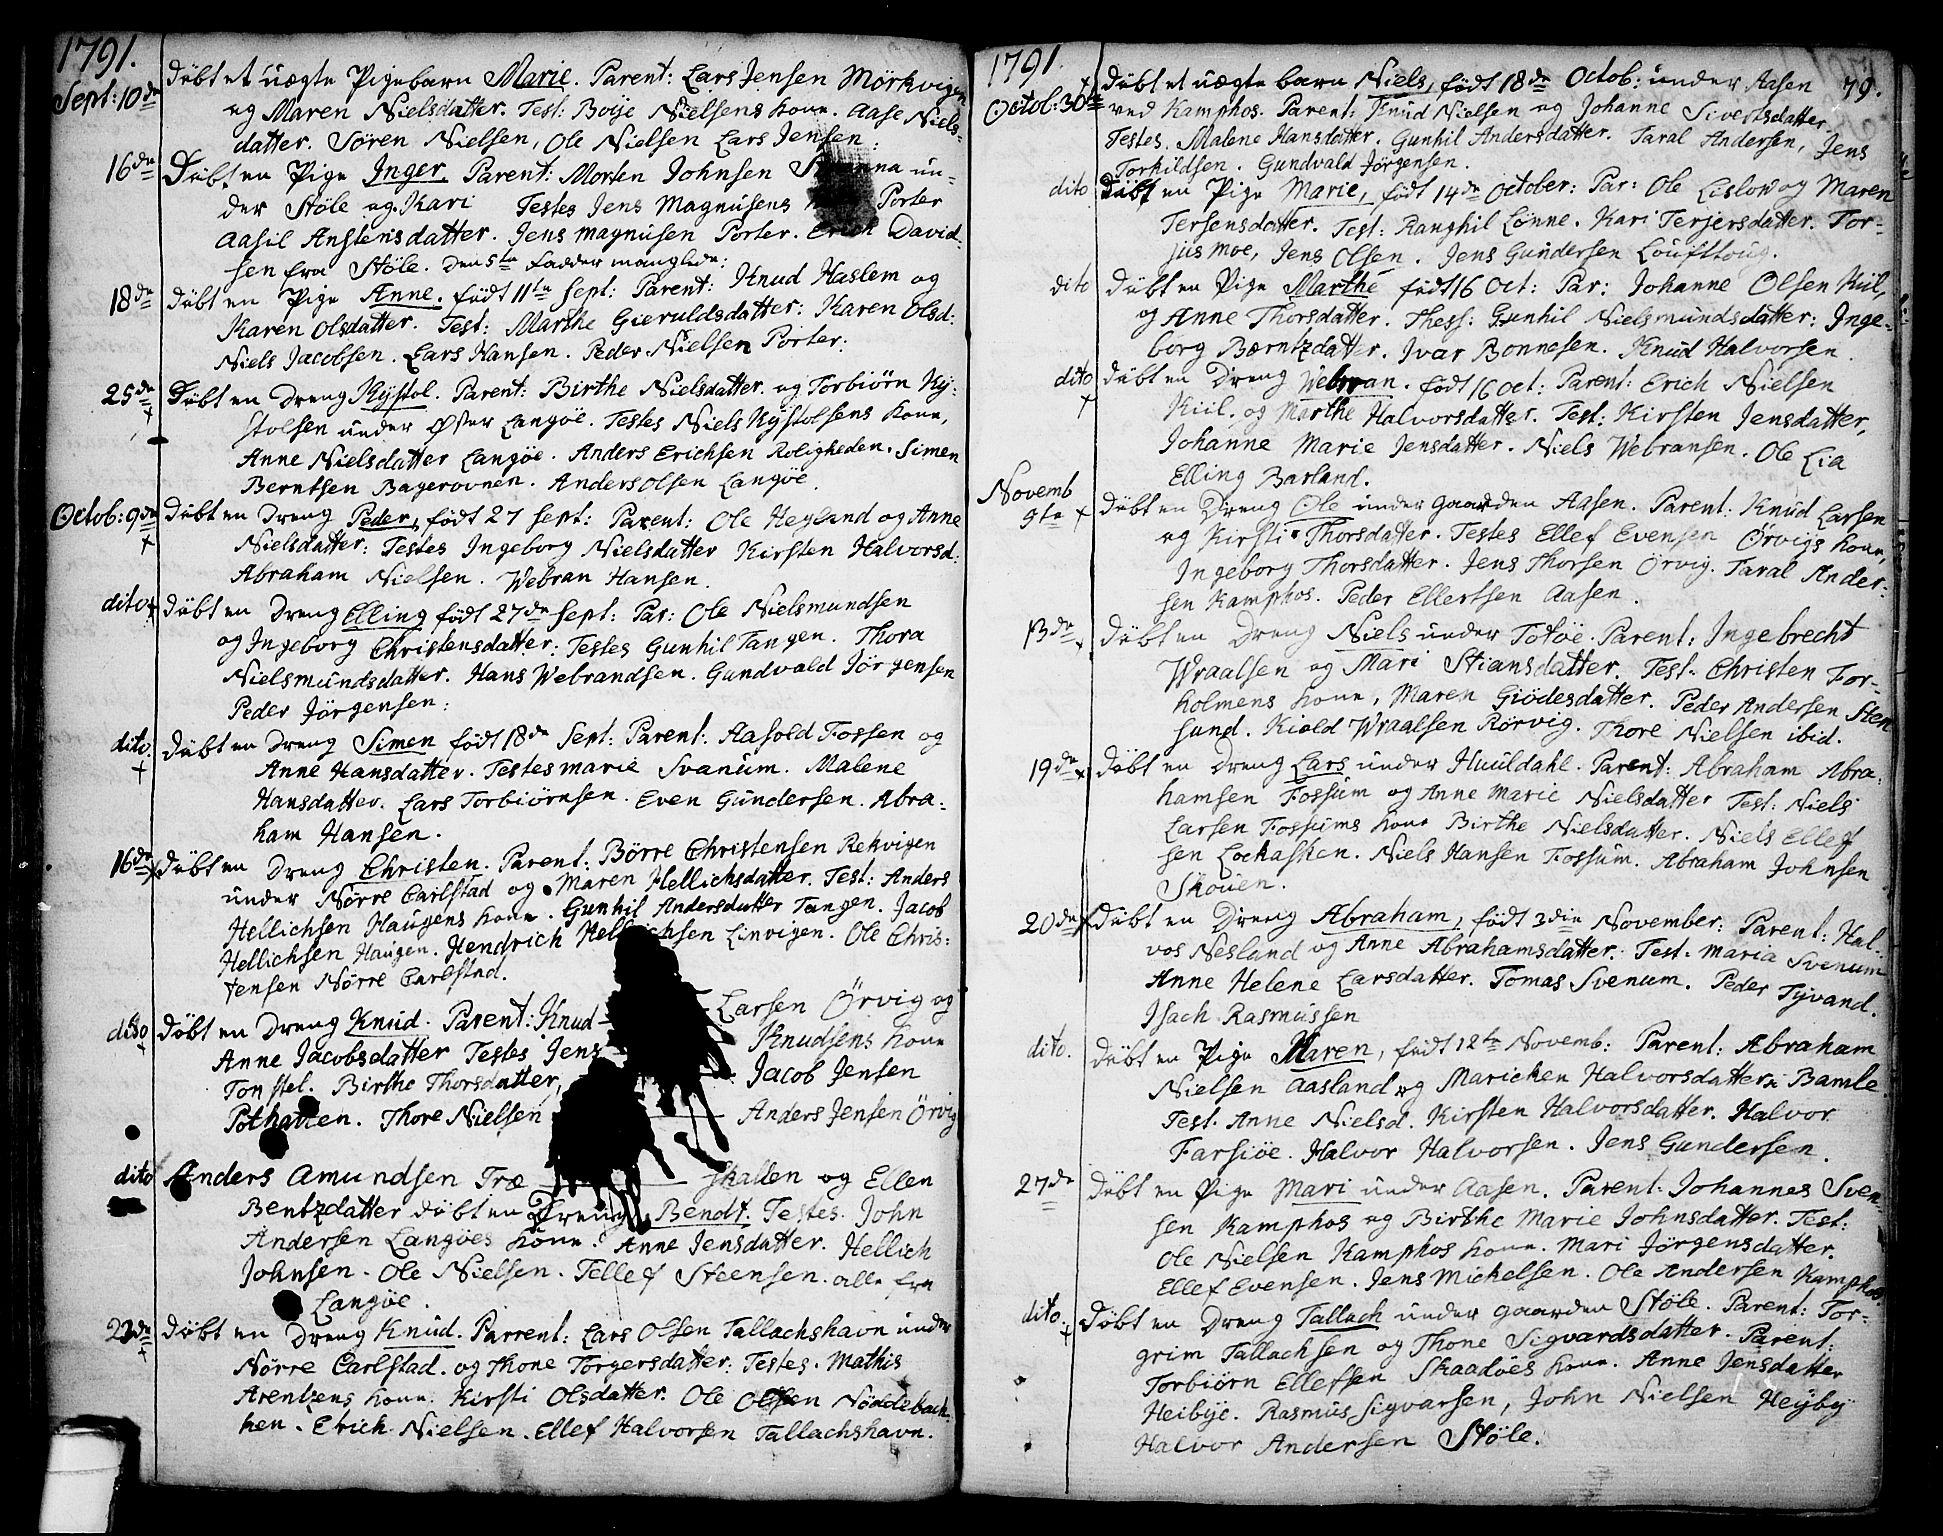 1791.
Sept: 10de döbt et uægte Pigebarn Marie. Parent: Lars Jensen Mörkvigen
og Maren Nielsdatter. Test: Boije Nielsens kone. Aase Niels-
datter. Sören Nielsen, Ole Nielsen Lars Jensen:
16de Döbt en Pige Inger. Parent: Morten Johnsen un-
der Støle og Kari Testes Jens Magnusens Porter
Aasil Anstensdatter. Jens Magnusen Porter. Erich David-
sen fra Støle. Den 5te Fadder manglede:
18de döbt en Pige Anne. födt 11te Sept: Parent: Knud Haslem og
Karen Olsdatter. Test: Marthe Gieruldsdatter: Karen Olsd:
Niels Jacobsen. Lars Hansen. Peder Nielsen Porter:
25de Döbt en Dreng Kijstol. Parent: Birthe Nielsdatter. og Torbiörn Kij-
stolsen under Øster Langöe. Testes Niels Kijstolsens kone,
Anne Nielsdatter Langöe. Anders Erichsen Roligheden. Simen
Berntsen Bagerovnen. Anders Olsen Langöe.
Octob: 9de döbt en Dreng Peder, födt 27 Sept: Parent: Ole Heglund og Anne
Nielsdatter: Testes Ingeborg Nielsdatter Kirsten Halvorsd:
Abraham Nielsen. Webran Hansen.
dito döbt en Dreng Elling födt 27de Sept: Par: Ole Nielsmundsen
og Ingeborg Christensdatter: Testes Gunhil Tangen. Thora
Nielsmundsdatter. Hans Webrandsen. Gundvald Jörgensen
Peder Jörgensen:
dito. döbt en Dreng Simen födt 18de Sept: Parent: Aasold Fossen og
Anne Hansdatter. Testes marie Svanum. Malene
Hansdatter. Lars Torbiörnsen. Even Gundersen. Abra-
ham Hansen.
16de döbt en Dreng Christen. Parent: Börre Christensen Rekvigen
under Nörre Carlstad og Maren Hellichsdatter. Test: Anders
Hellichsen Haugens kone. Gunhil Andersdatter Tangen. Jacob
Hellichsen Haugen. Hendrich Hellichsen Linvigen. Ole Chris-
tensen Nörre Carlstad.
dito döbt en Dreng Knud. Parent: Knud Larsen Örvig og
Anne Jacobsdatter Testes Jens Knudsens kone
Tonstel. Birthe Thorsdatter, Jacob Jensen
Pothatten. Thore Nielsen Anders Jensen Örvig
dito Anders Amundsen Træ skallen og Ellen
Bentzdatter döbt en Dreng Bendt. Testes. John
Andersen Langöes kone. Anne Jensdatter. Hellich
Johnsen. Ole Nielsen. Tellef Steensen. alle fra
Langöe.
23de döbt en Dreng Knud. Parrent: Lars Olsen Tallachshavn under
Nörre Carlstad. og Thone Torgersdatter: Testes. Mathis
Arentzens kone. Kirsti Olsdatter. Ole Olsen Nöddebach-
ken. Erich Nielsen. Ellef Halvorsen Tallachshavn.
1791. 79.
Octob: 30te döbt et uægte barn Niels, födt 18de Octob: under Aasen
ved Kamphos. Parent: Knud Nielsen og Johanne Sivertsdatter.
Testes. Malene Hansdatter. Gunhil Andersdatter. Taral Andersen, Jens
Torkildsen. Gundvald Jörgensen.
dito döbt en Pige Marie, födt 14de October: Par: Ole Lislow og Maren
Tersensdatter. Test: Ranghil Lönne. Kari Terjersdatter. Tor-
jus Moe, Jens Olsen. Jens Gundersen Louftoug.
dito döbt en Pige Marthe födt 16 Oct: Par: Johanne Olsen Kiil,
og Anne Thorsdatter. Thess: Gunhil Nielsmundsdatter: Inge-
borg Bærntzdatter. Ivar Bonnesen. Knud Halvorsen.
dito döbt en Dreng Webran. födt 16 Oct: Parent: Erich Nielsen
Kiil. og Marthe Halvorsdatter. Test: Kirsten Jensdatter,
Johanne Marie Jensdatter. Niels Webransen. Ole Lia
Elling Barland.
Novemb
9te döbt en Dreng Ole under gaarden Aasen. Parent: Knud Larsen
og Kirsti Thorsdatter. Testes Ellef Evensen Örvigs kone,
Ingeborg Thorsdatter. Jens Thorsen Örvig. Taral Ander-
sen Kamphos. Peder Ellertsen Aasen.
13de döbt en Dreng Niels under Totöe. Parent: Ingebrecht
Wraalsen og Mari Stiansdatter. Test: Christen For-
holmens kone, Maren Giödesdatter. Peder Andersen Sten
sund. Kiøld Wraalsen Rörvig. Thore Nielsen ibid.
19de döbt en Dreng Lars under Huuldahl. Parent: Abraham Abra-
hamsen Fossum og Anne Marie Nielsdatter Test: Niels
Larsen Fossums kone Birthe Nielsdatter. Niels Ellef
sen Lockasken. Niels Hansen Fossum. Abraham Johnsen
Skouen.
20de döbt en Dreng Abraham, födt 3die November: Parent: Hal-
vos Nesland og Anne Abrahamsdatter. Test. Maria Svenum
Anne Helene Larsdatter. Tomas Svenum. Peder Tijvand.
Isach Rasmussen
dito. döbt en Pige Maren, födt 12te Novemb: Parent: Abraham
Nielsen Aasland og Maricken Halvorsdatter i Bamle
Test. Anne Nielsd. Kirsten Halvorsdatter. Halvor
Farsiöe. Halvor Halvorsen. Jens Gundersen.
27de döbt en Pige Mari under Aasen. Parent: Johannes Sven-
sen Kamphos og Birthe Marie Johnsdatter. Test:
Ole Nielsen Kamphos kone. Mari Jörgensdatter.
Ellef Evensen. Jens Michelsen. Ole Andersen Kamphos.
dito. döbt en Dreng Tallach under gaarden Støle. Parent: Tor-
grim Tallachsen og Thone Sigvardsdatter. Parent:
Torbiörn Ellefsen Skaadöes kone. Anne Jensdatter
Heibije. Rasmus Sigvarsen, John Nielsen Heijbij
Halvor Andersen Støle.